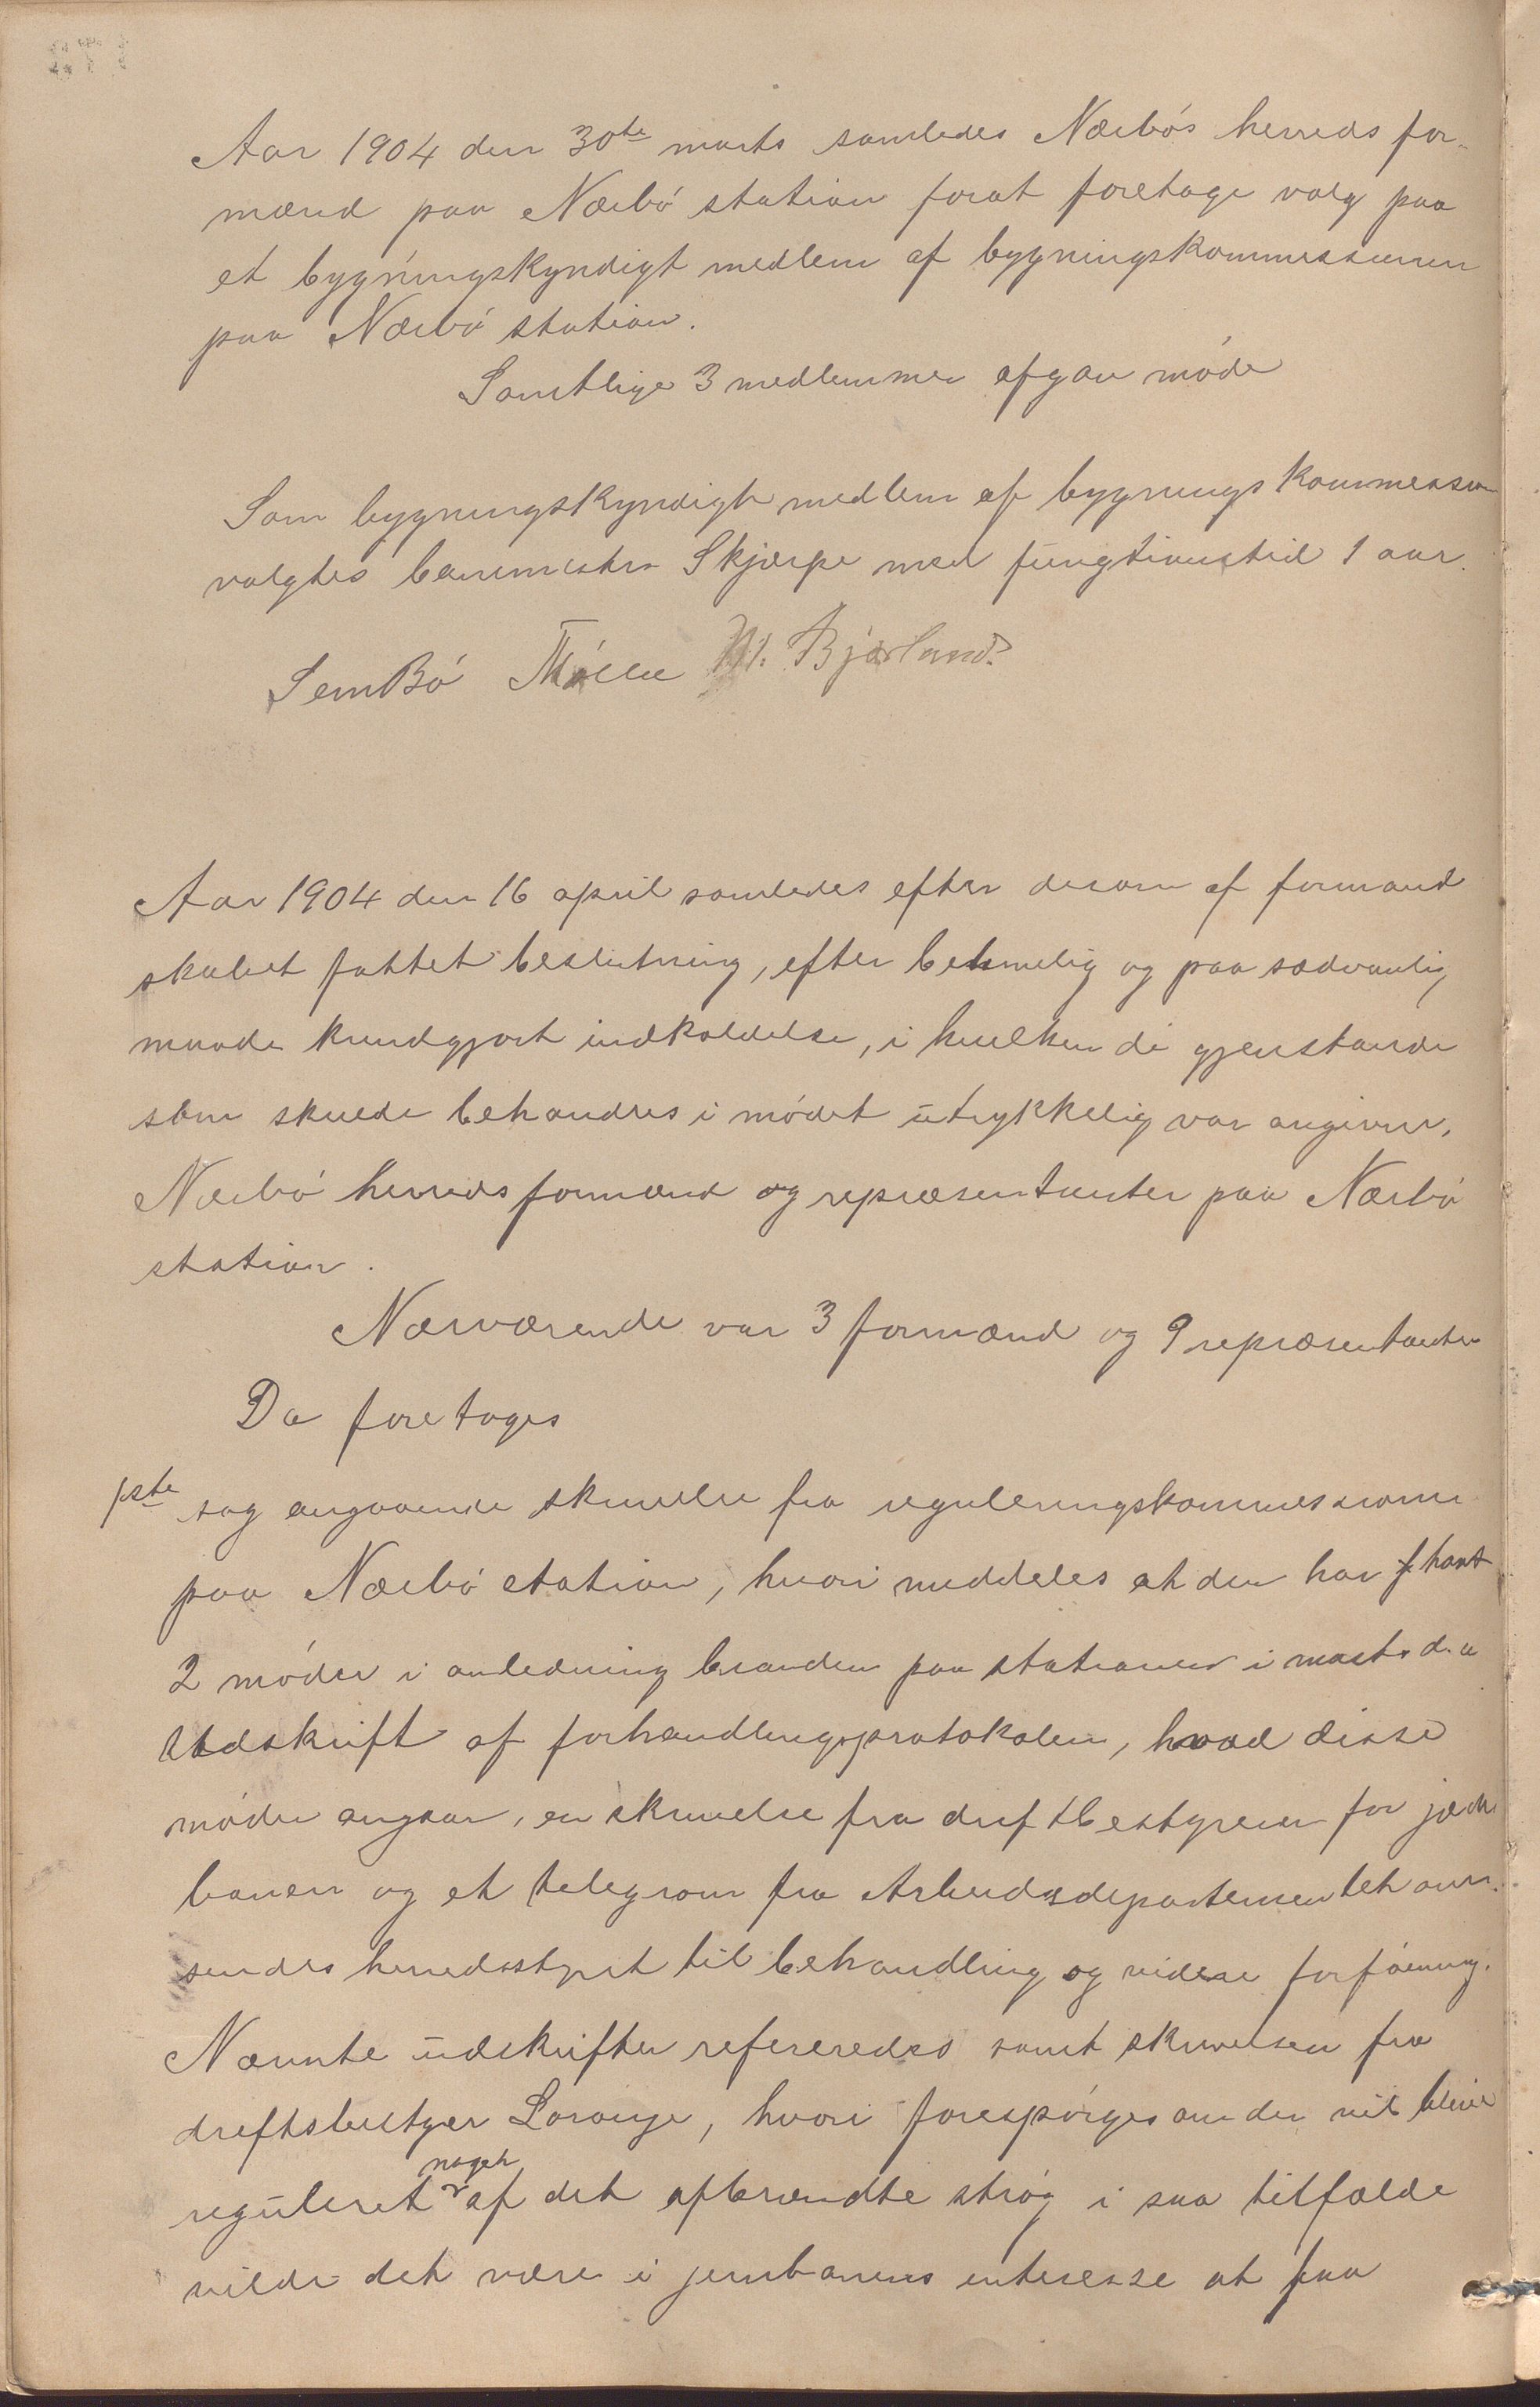 Aar 1904 den 30te marts samledes Nærbøs herreds for-
mænd paa Nærbø station forat foretage valg paa
et bygningskyndigt medlem af bygningskommessionen
paa Nærbø station.
Samtlige 3 medlemmer afgav møde
Som bygningskyndigt medlem af bygningskommession
valgtes banemester Skjærpe med fungtionstid 1 aar.
Sem Bø M. Bjorland.
Aar 1904 den 16 april samledes efter derom af formand
skabet fattet beslutning, efter betimelig og paa sædvanlig
maade kundgjort indkaldelse, i hvilken de gjenstande
som skulde behandles i mødet utrykkelig var angivne,
Nærbø herreds formænd og repræsentanter paa Nærbø
station.
Nærværende var 3 formænd og 9 repræsentanter
Da foretages
1ste sag angaaende skrivelse fra reguleringskommessionen
paa Nærbø station, hvori meddeles at den har havt
2 møder i anledning branden paa stationen i marts d.a
Utdskrift af forhandlingsprotokolen, hvad disse
møder angaar, en skrivelse fra driftbestyreren for jæder
banen og et telegram fra Arbeidsdepartementet over-
sendes herredsstyret til behandling og videre forføining.
Nævnte udskrifter refereredes samt skrivelsen fra
driftsbestyrer Lorange, hvori forespørges om der vil blive
reguleret noget af det afbrændte strøg i saa tilfælde
vilde det være i jernbanens interesse at faa